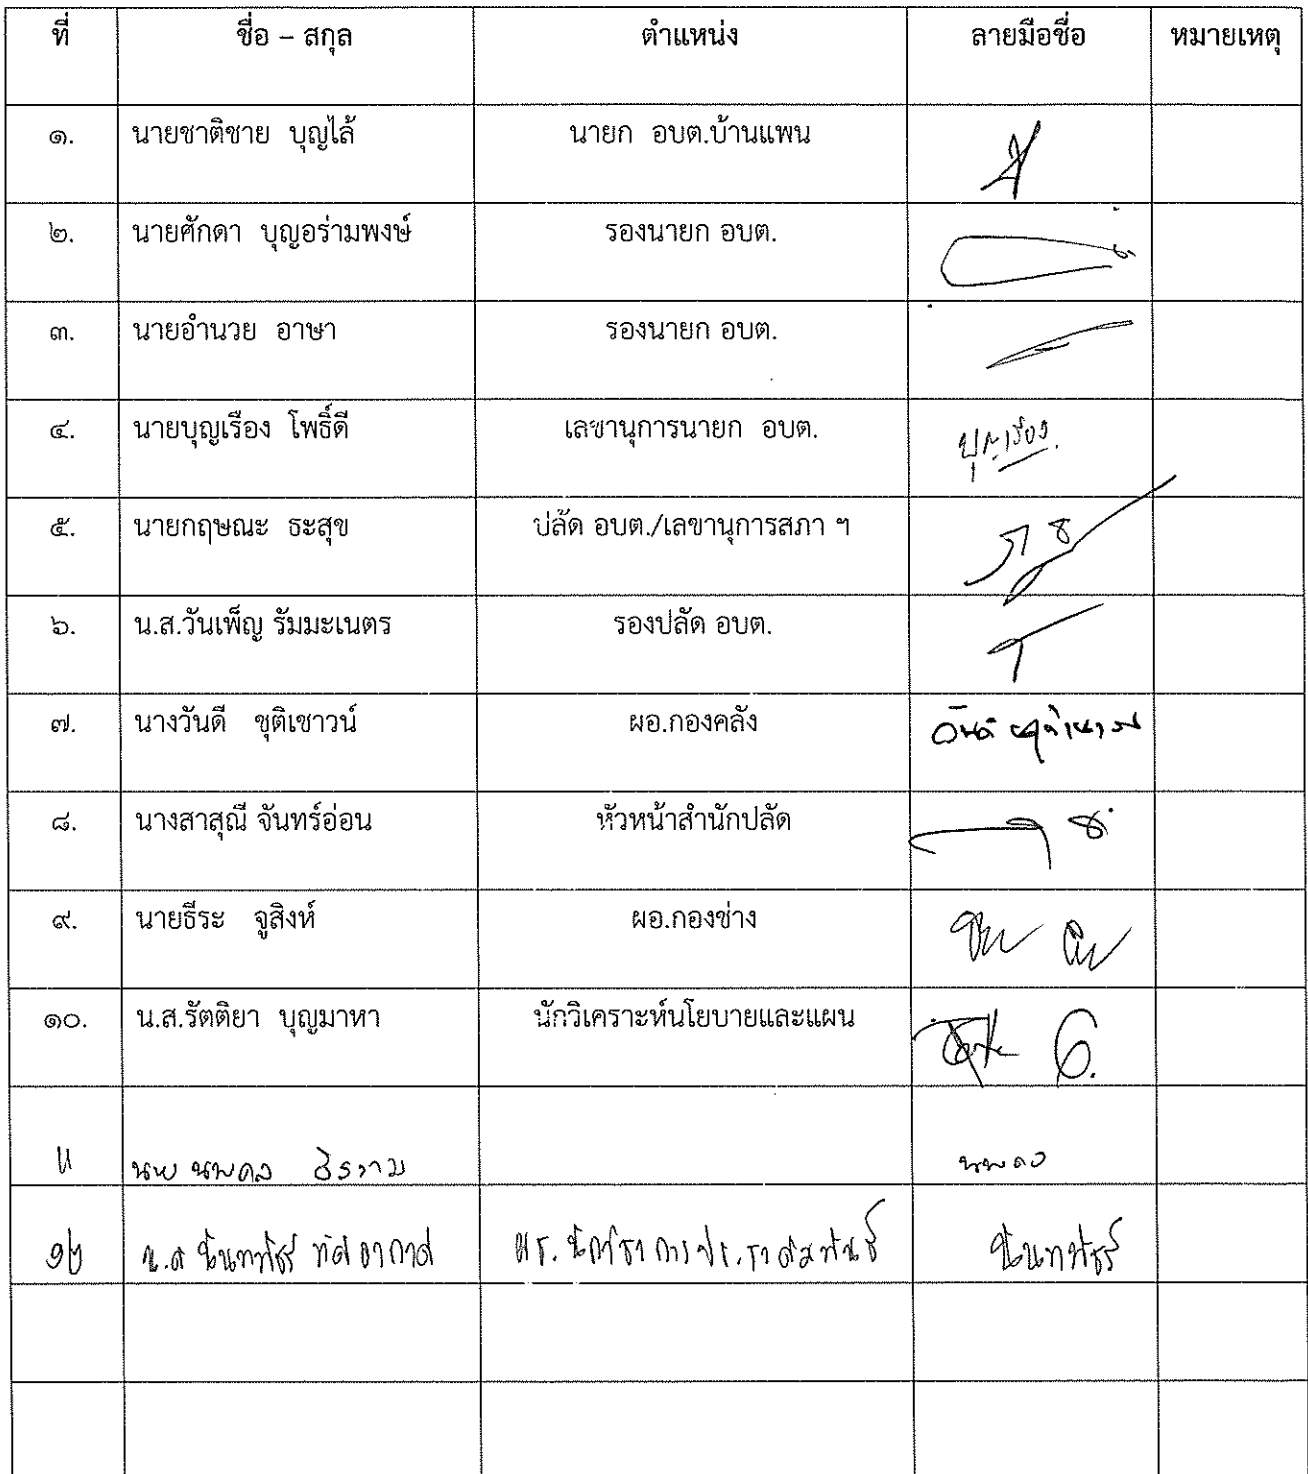 ที่ ชื่อ – สกุล ตำแหน่ง ลายมือชื่อ หมายเหตุ
๑. นายชาติชาย บุญไล้ นายก อบต.บ้านแพน
๒. นายศักดา บุญอร่ามพงษ์ รองนายก อบต.
๓. นายอำนวย อาษา รองนายก อบต.
๔. นายบุญเรือง โพธิ์ดี เลขานุการนายก อบต. บุญเรือง
๕. นายกฤษณะ ธะสุข ปลัด อบต./เลขานุการสภา ฯ
๖. น.ส.วันเพ็ญ รัมมะเนตร รองปลัด อบต.
๗. นางวันดี ชุติเชาวน์ ผอ.กองคลัง วันดี ชุติเชาวน์
๘. นางสาสุณี จันทร์อ่อน หัวหน้าสำนักปลัด
๙. นายธีระ จูสิงห์ ผอ.กองช่าง
๑๐. น.ส.รัตติยา บุญมาหา นักวิเคราะห์นโยบายและแผน
11 นาย นพดล นพดล
๑๒ น.ส นันทพัชร์ ผช. นักวิชาการประชาสัมพันธ์ นันทพัชร์